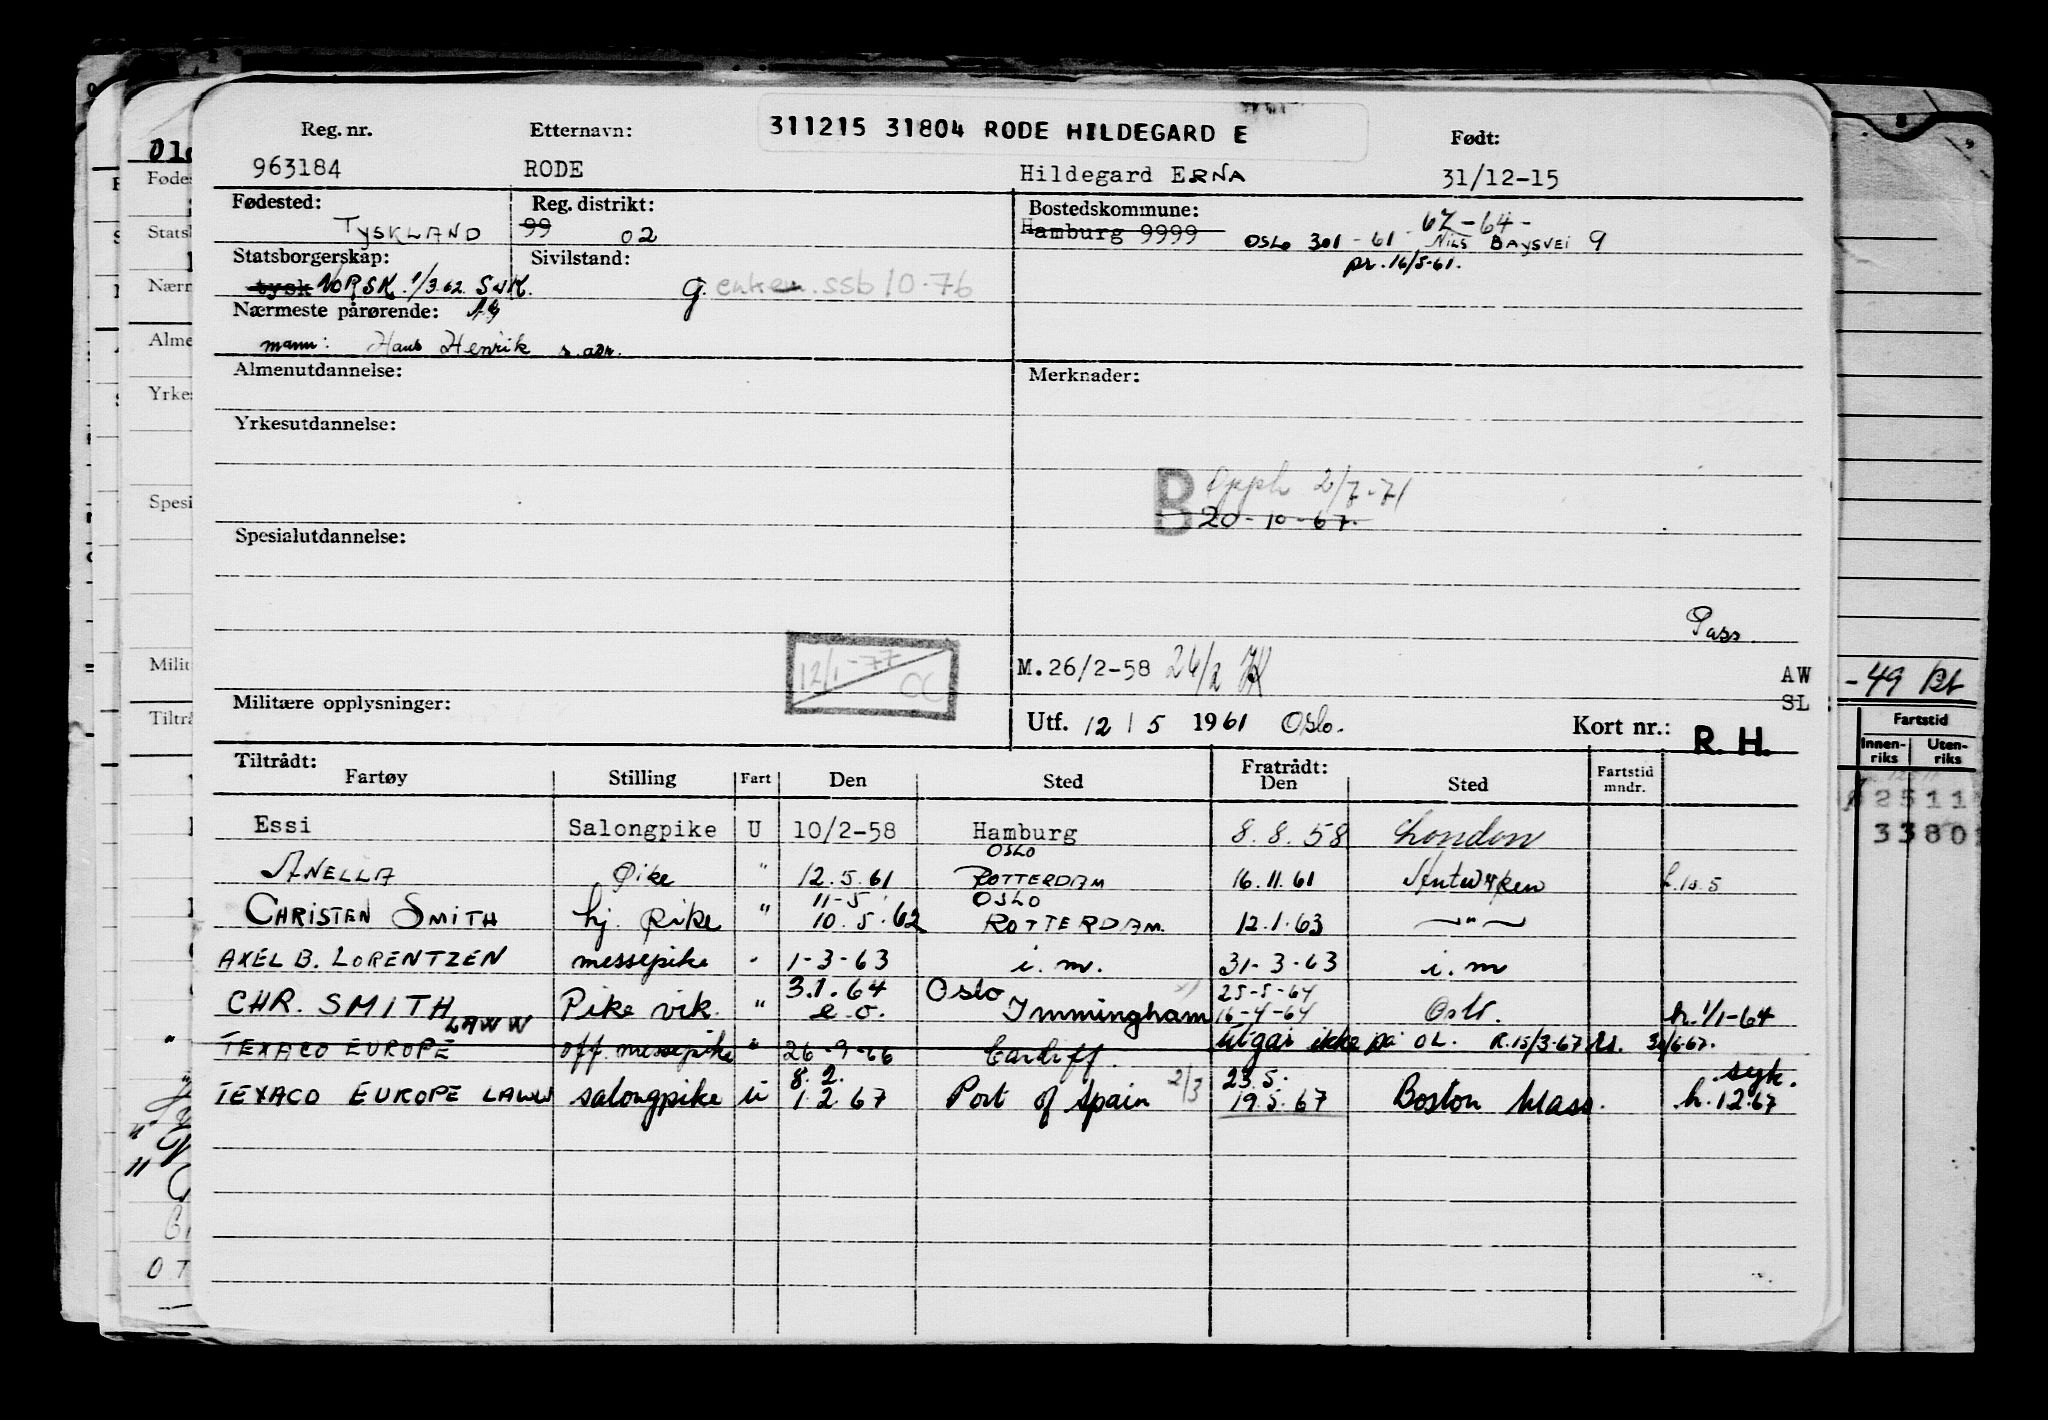 311215 31804 RODE HILDEGARD E
Reg. nr. Etternavn: Født:
963184 RODE Hildegard ERNA 31/12-15
Fødested: Reg. distrikt: Bostedskommune:
TYSKLAND 99 02 Hamburg 9999 OSLO 301-61- 67-64- NILS BAYSVEI 9
pr. 16/5-61.
Statsborgerskap: Sivilstand:
tysk NORSK. 1/3.62. g. enke ssb 10-76
Nærmeste pårørende:
mann: Hans Henrik s. adr.
Almenutdannelse: Merknader:
Yrkesutdannelse:
B Opph 2/7-71
20-10-67.
Spesialutdannelse:
Pass.
12/1-77
M.26/2-58 26/2 AW
SL
Militære opplysninger: Utf. 12/5 1961 Oslo. Kort nr.: R. H.
Tiltrådt: Fratrådt:
Fartøy Stilling Fart Den Sted Den Sted Fartstid mndr.
Essi Salongpike U 10/2-58 Hamburg 8.8.58 London
OSLO
ANELLA Pike " 12.5.61 ROTTERDAM 16.11.61 Antwerpen h.10.5
11-5 OSLO
CHRISTEN SMITH hj. pike " 10.5.62 ROTTERDAM 12.1.63 — " —
AXEL B. LORENTZEN messepike " 1-3-63 i.m. 31-3-63 i.m
3.1.64 Oslo 25-5-64
CHR. SMITH Pike vik. " e.o. Immingham 16-4-64 Oslo. h. 1/1-64
" TEXACO EUROPE LAWW off. messepike " 26-9-66 Cardiff. Utgår ikke på OL. R.15/3-67
8.2. 2/3 23.5. syk.
TEXACO EUROPE LAWW salongpike U 1.2.67 Port of Spain 19.5.67 Boston Mass. h.1.2.67
Olo
Mili
Tiltrå
-49
Fartstid
Innen-riks Uten-riks
2511
3380